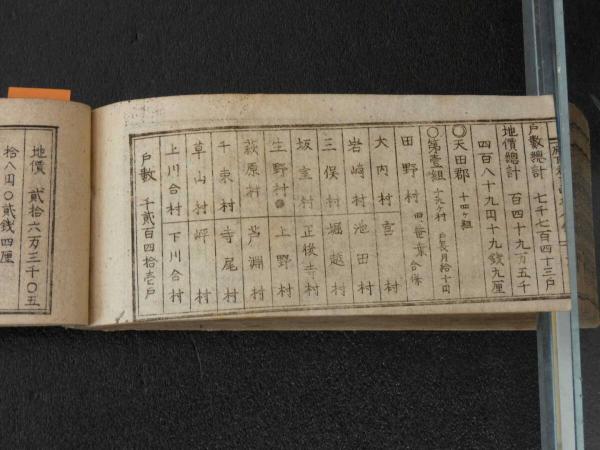 戸數總計 七千七百四十三戸
地價總計 百四十九万五千
四百八十九円十九錢九厘
〇天田郡 十四ヶ組
〇第壹組 十九ヶ村 戸長月給十円
田野村 田笹葉合併
大内村 宮村
岩崎村 池田村
三俣村 堀越村
坂室村 正後寺村
生野村 上野村
萩原村 芦渕村
千束村 寺尾村
草山村 岼村
上川合村 下川合村
戸數 千貳百四拾壱戸
地價 貳拾六万三千〇五
拾八円〇貳錢四厘